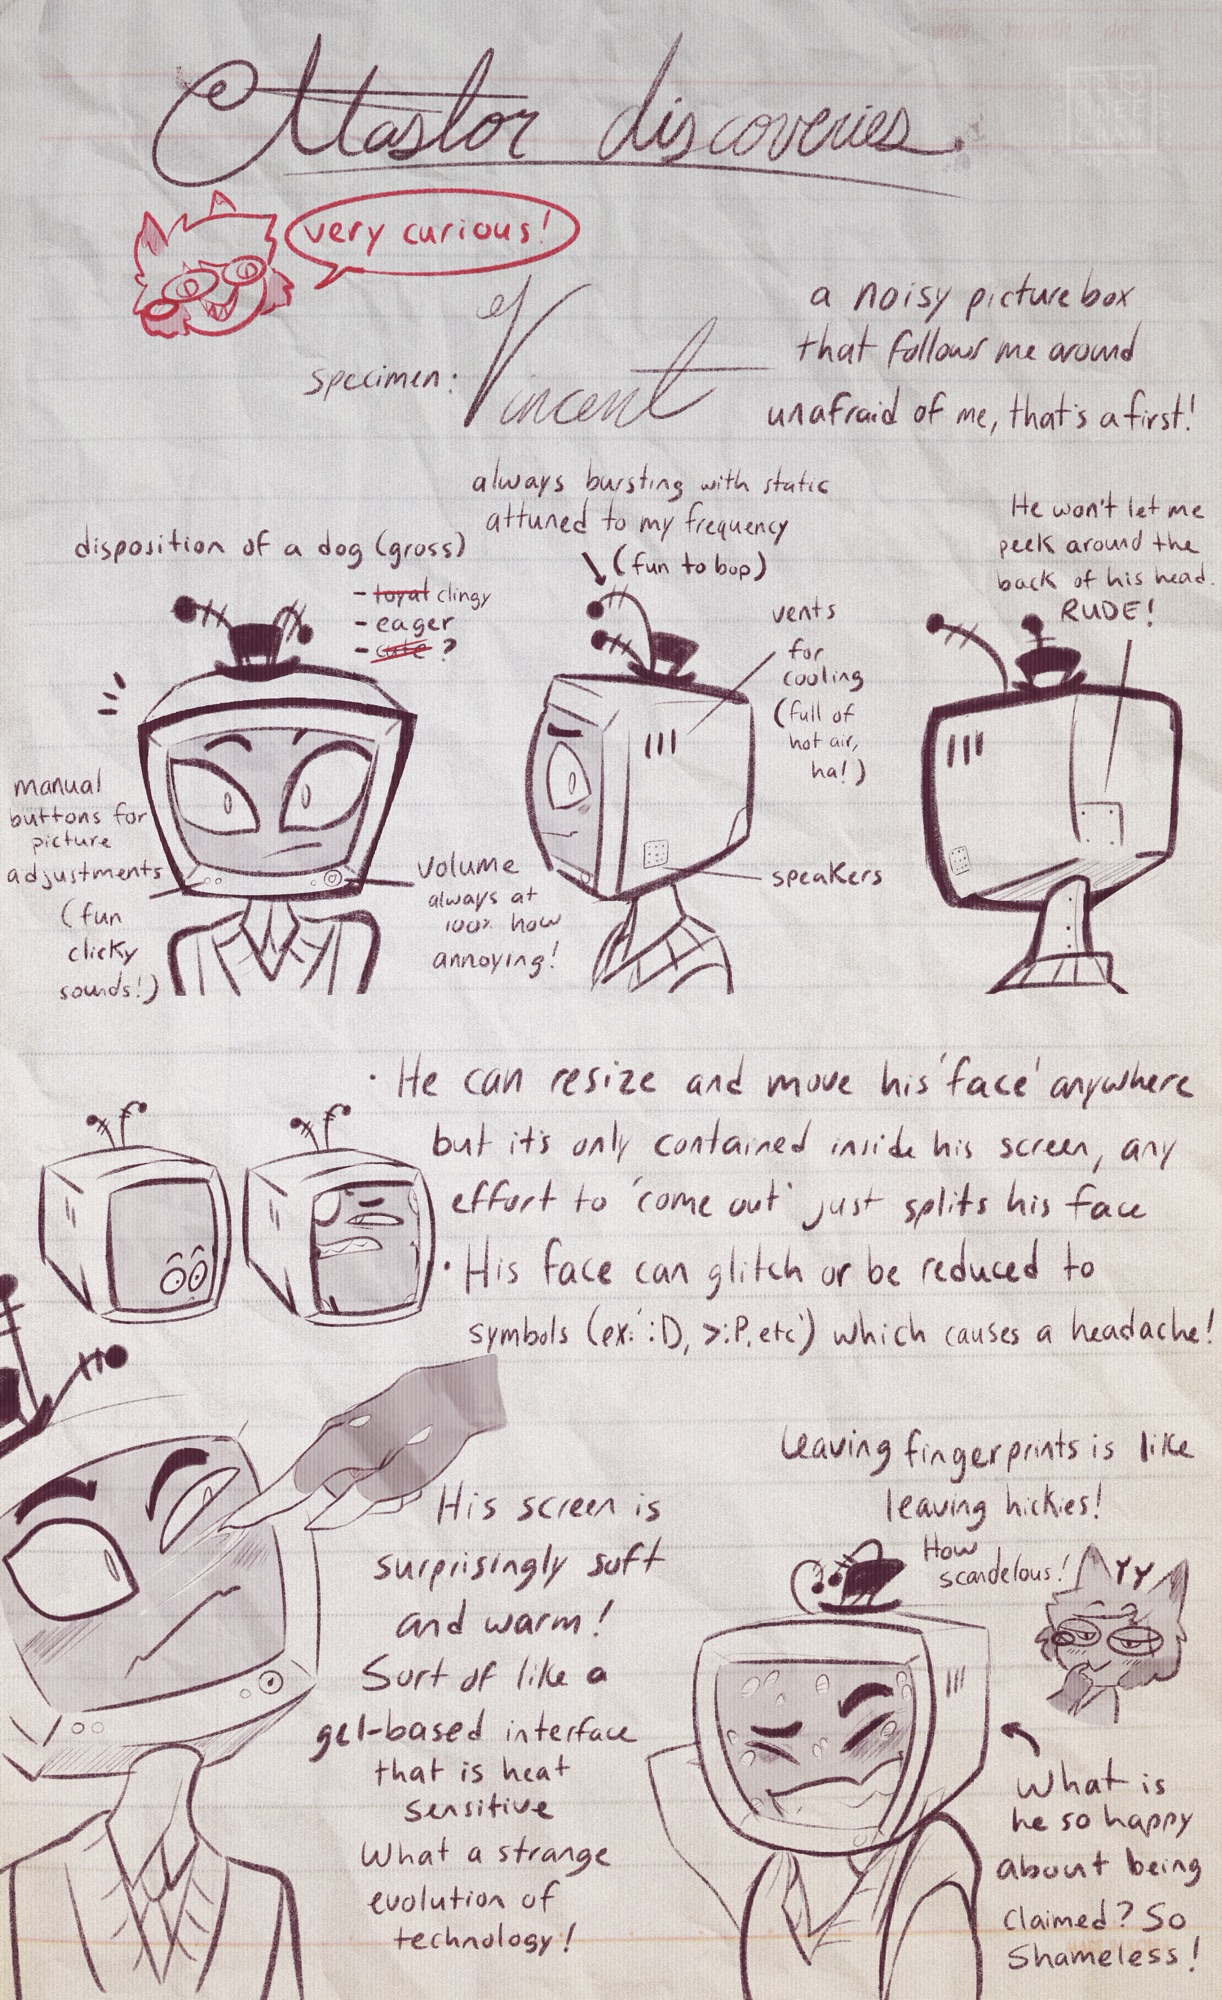 Alastor discoveries.
very curious!
specimen: Vincent
a noisy picture box
that follows me around
unafraid of me, that's a first!
always bursting with static
attuned to my frequency
(fun to bop)
disposition of a dog (gross)
- loyal clingy
- eager
- cute ?
He won't let me
peek around the
back of his head.
RUDE!
vents
for
cooling
(full of
hot air,
ha!)
manual
buttons for
picture
adjustments
(fun
clicky
sounds!)
volume
always at
100% how
annoying!
speakers
· He can resize and move his 'face' anywhere
but it's only contained inside his screen, any
effort to 'come out' just splits his face
· His face can glitch or be reduced to
symbols (ex: ':D, >:P, etc') which causes a headache!
His screen is
surprisingly soft
and warm!
Sort of like a
gel-based interface
that is heat
sensitive
What a strange
evolution of
technology!
Leaving fingerprints is like
leaving hickies!
How
scandelous!
What is
he so happy
about being
claimed? So
Shameless!